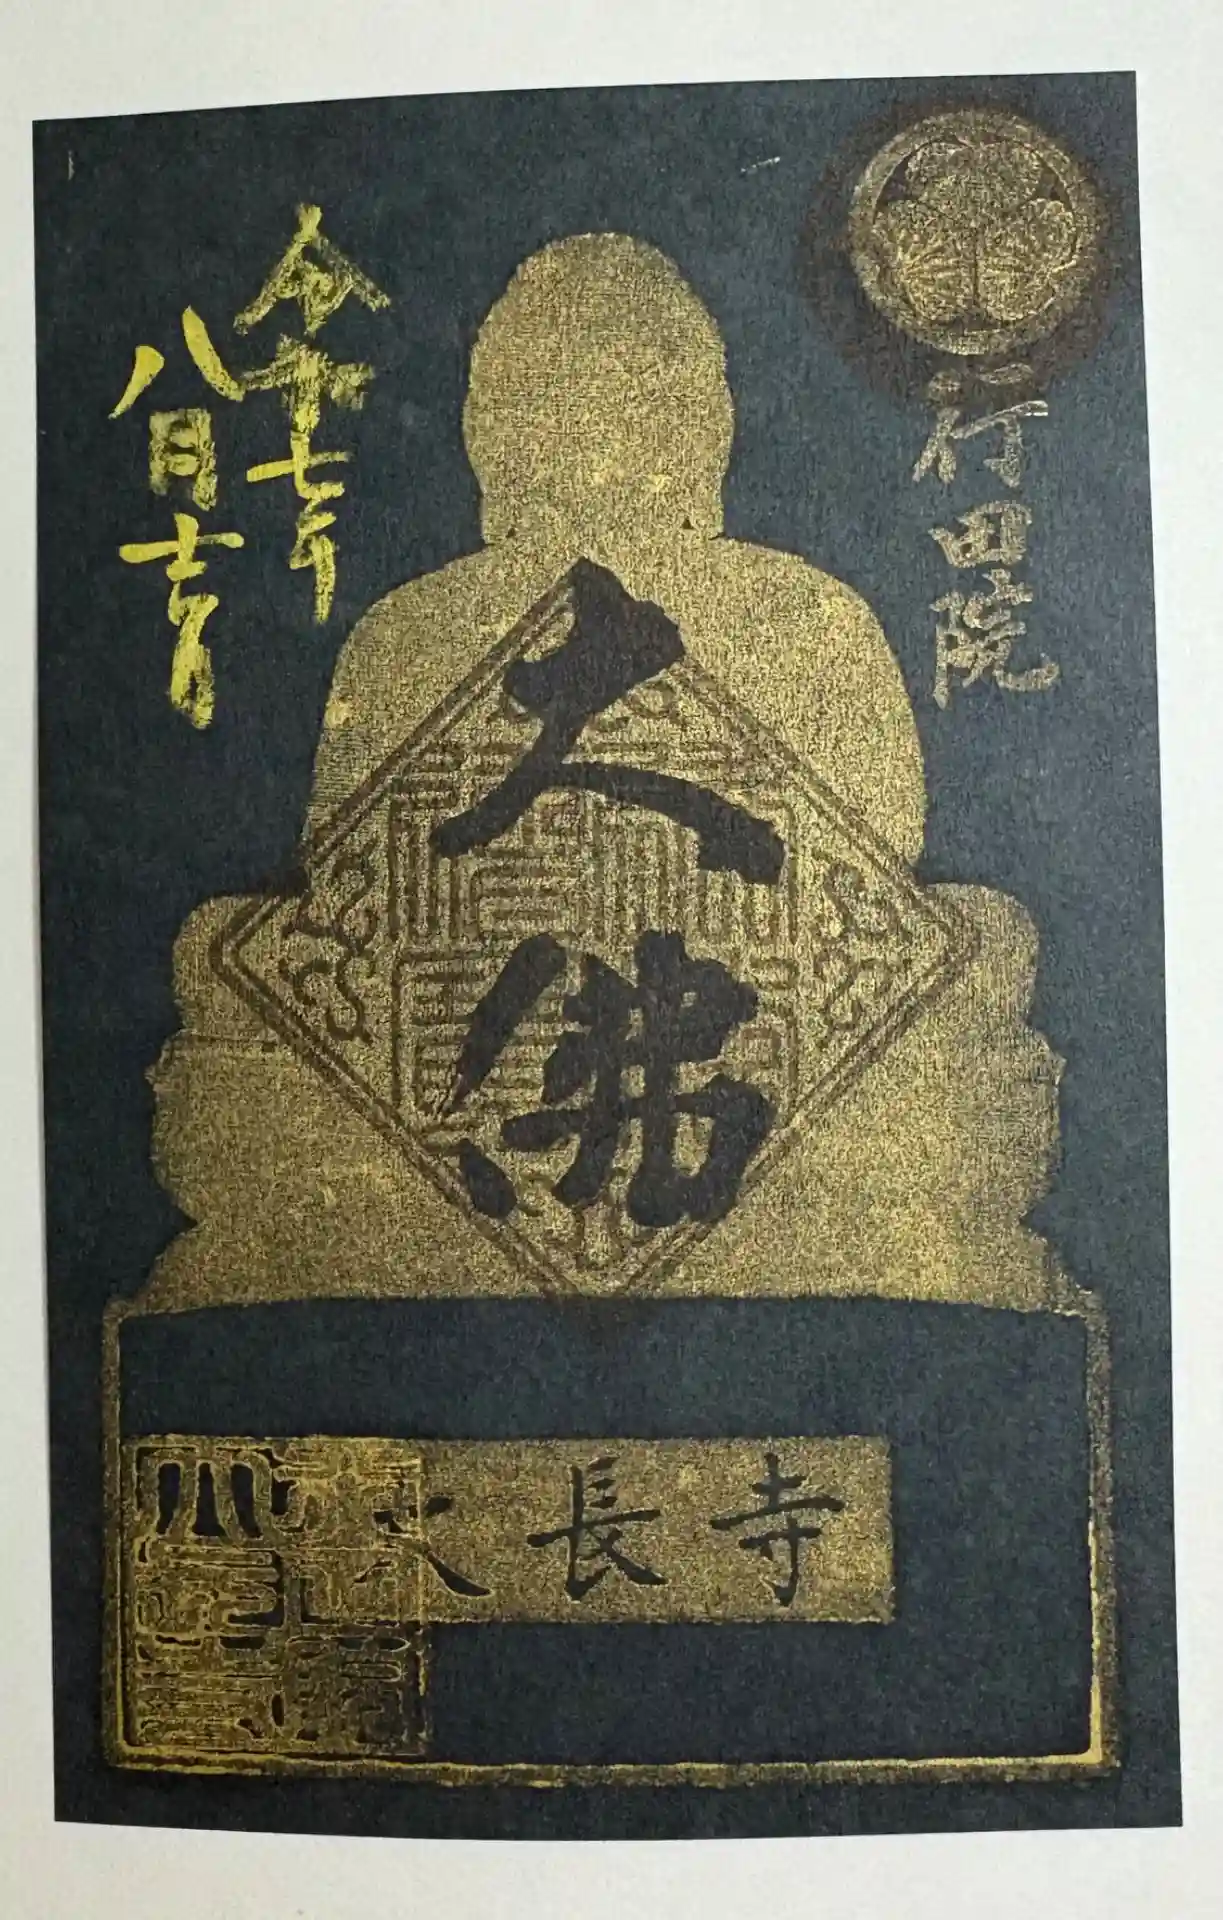 行田院
大佛
令和七年
八月
大長寺